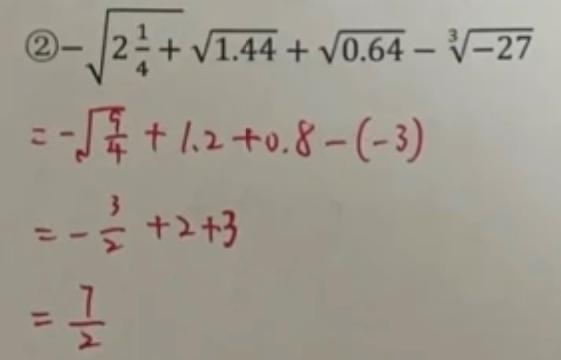 ②−√(2 1/4 +) √1.44 + √0.64 − ∛−27
= −√(9/4) + 1.2 + 0.8 − (−3)
= − 3/2 + 2 + 3
= 7/2